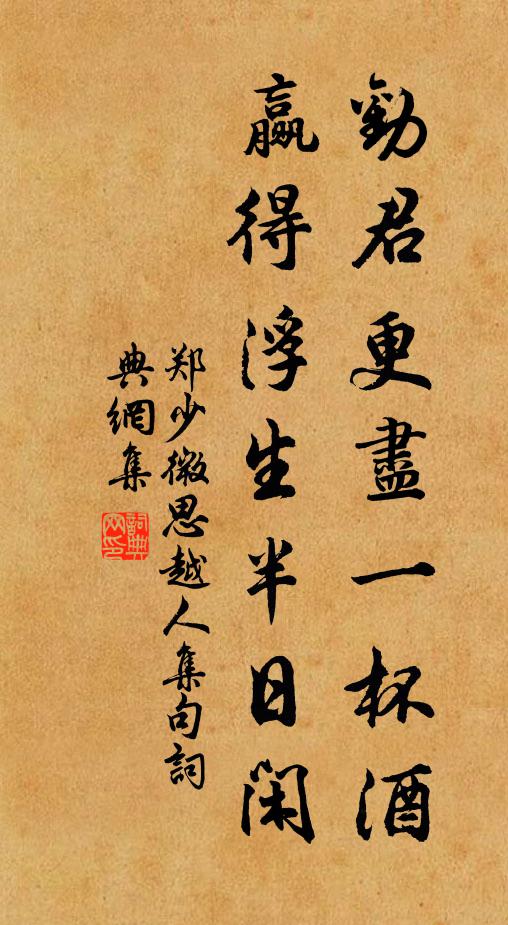 勸君更盡一杯酒
贏得浮生半日閑
郑少微思越人集句詞
典網集
詞典網印